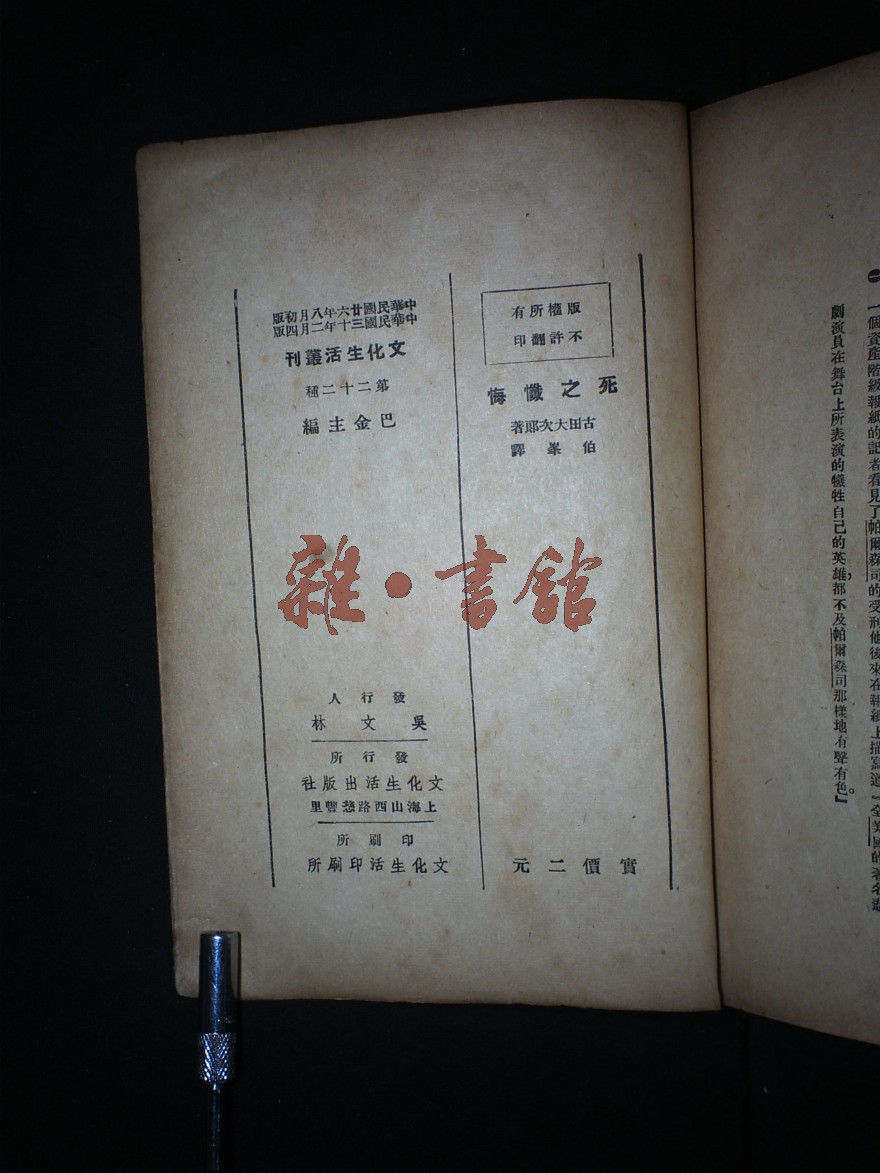 ㊀ 一個資產階級報紙的記者看見了帕爾森司的受刑他後來在報紙上描寫道『全美國的著名悲
劇演員在舞台上所表演的犧牲自己的英雄，都不及帕爾森司那樣地有聲有色。』
版權所有
不許翻印
死之懺悔
古田大次郎著
伯峯譯
實價二元
中華民國廿六年八月初版
中華民國三十年二月四版
文化生活叢刊
第二十二種
巴金主編
發行人
吳文林
發行所
文化生活出版社
上海山西路慈豐里
印刷所
文化生活印刷所
雜·書館